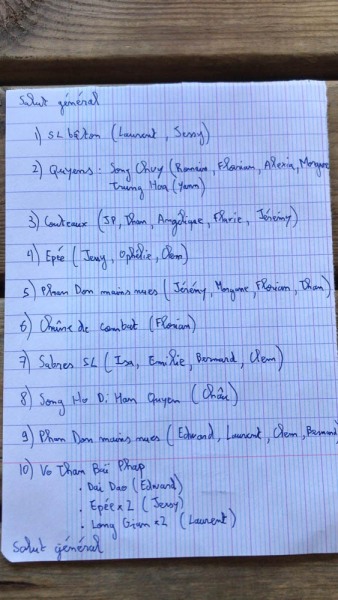 Salut général
1) SL bâton (Laurent, Jessy)
2) Quyens : Song Chuy (Romain, Florian, Alexia, Morgane
Trung Hoa (Yann)
3) Couteaux (JP, Than, Angélique, Flavie, Jérémy)
4) Epée (Jessy, Ophélie, Clem)
5) Phan Don mains nues (Jérémy, Morgane, Florian, Than)
6) Chaîne de combat (Florian)
7) Sabres SL (Isa, Emilie, Bernard, Clem)
8) Song Ho Di Han Quyen (Châu)
9) Phan Don mains nues (Edward, Laurent, Clem, Bernard)
10) Vo Than Baï Phap
. Dai Dao (Edward)
. Epée x 2 (Jessy)
. Long Gian x 2 (Laurent)
Salut général